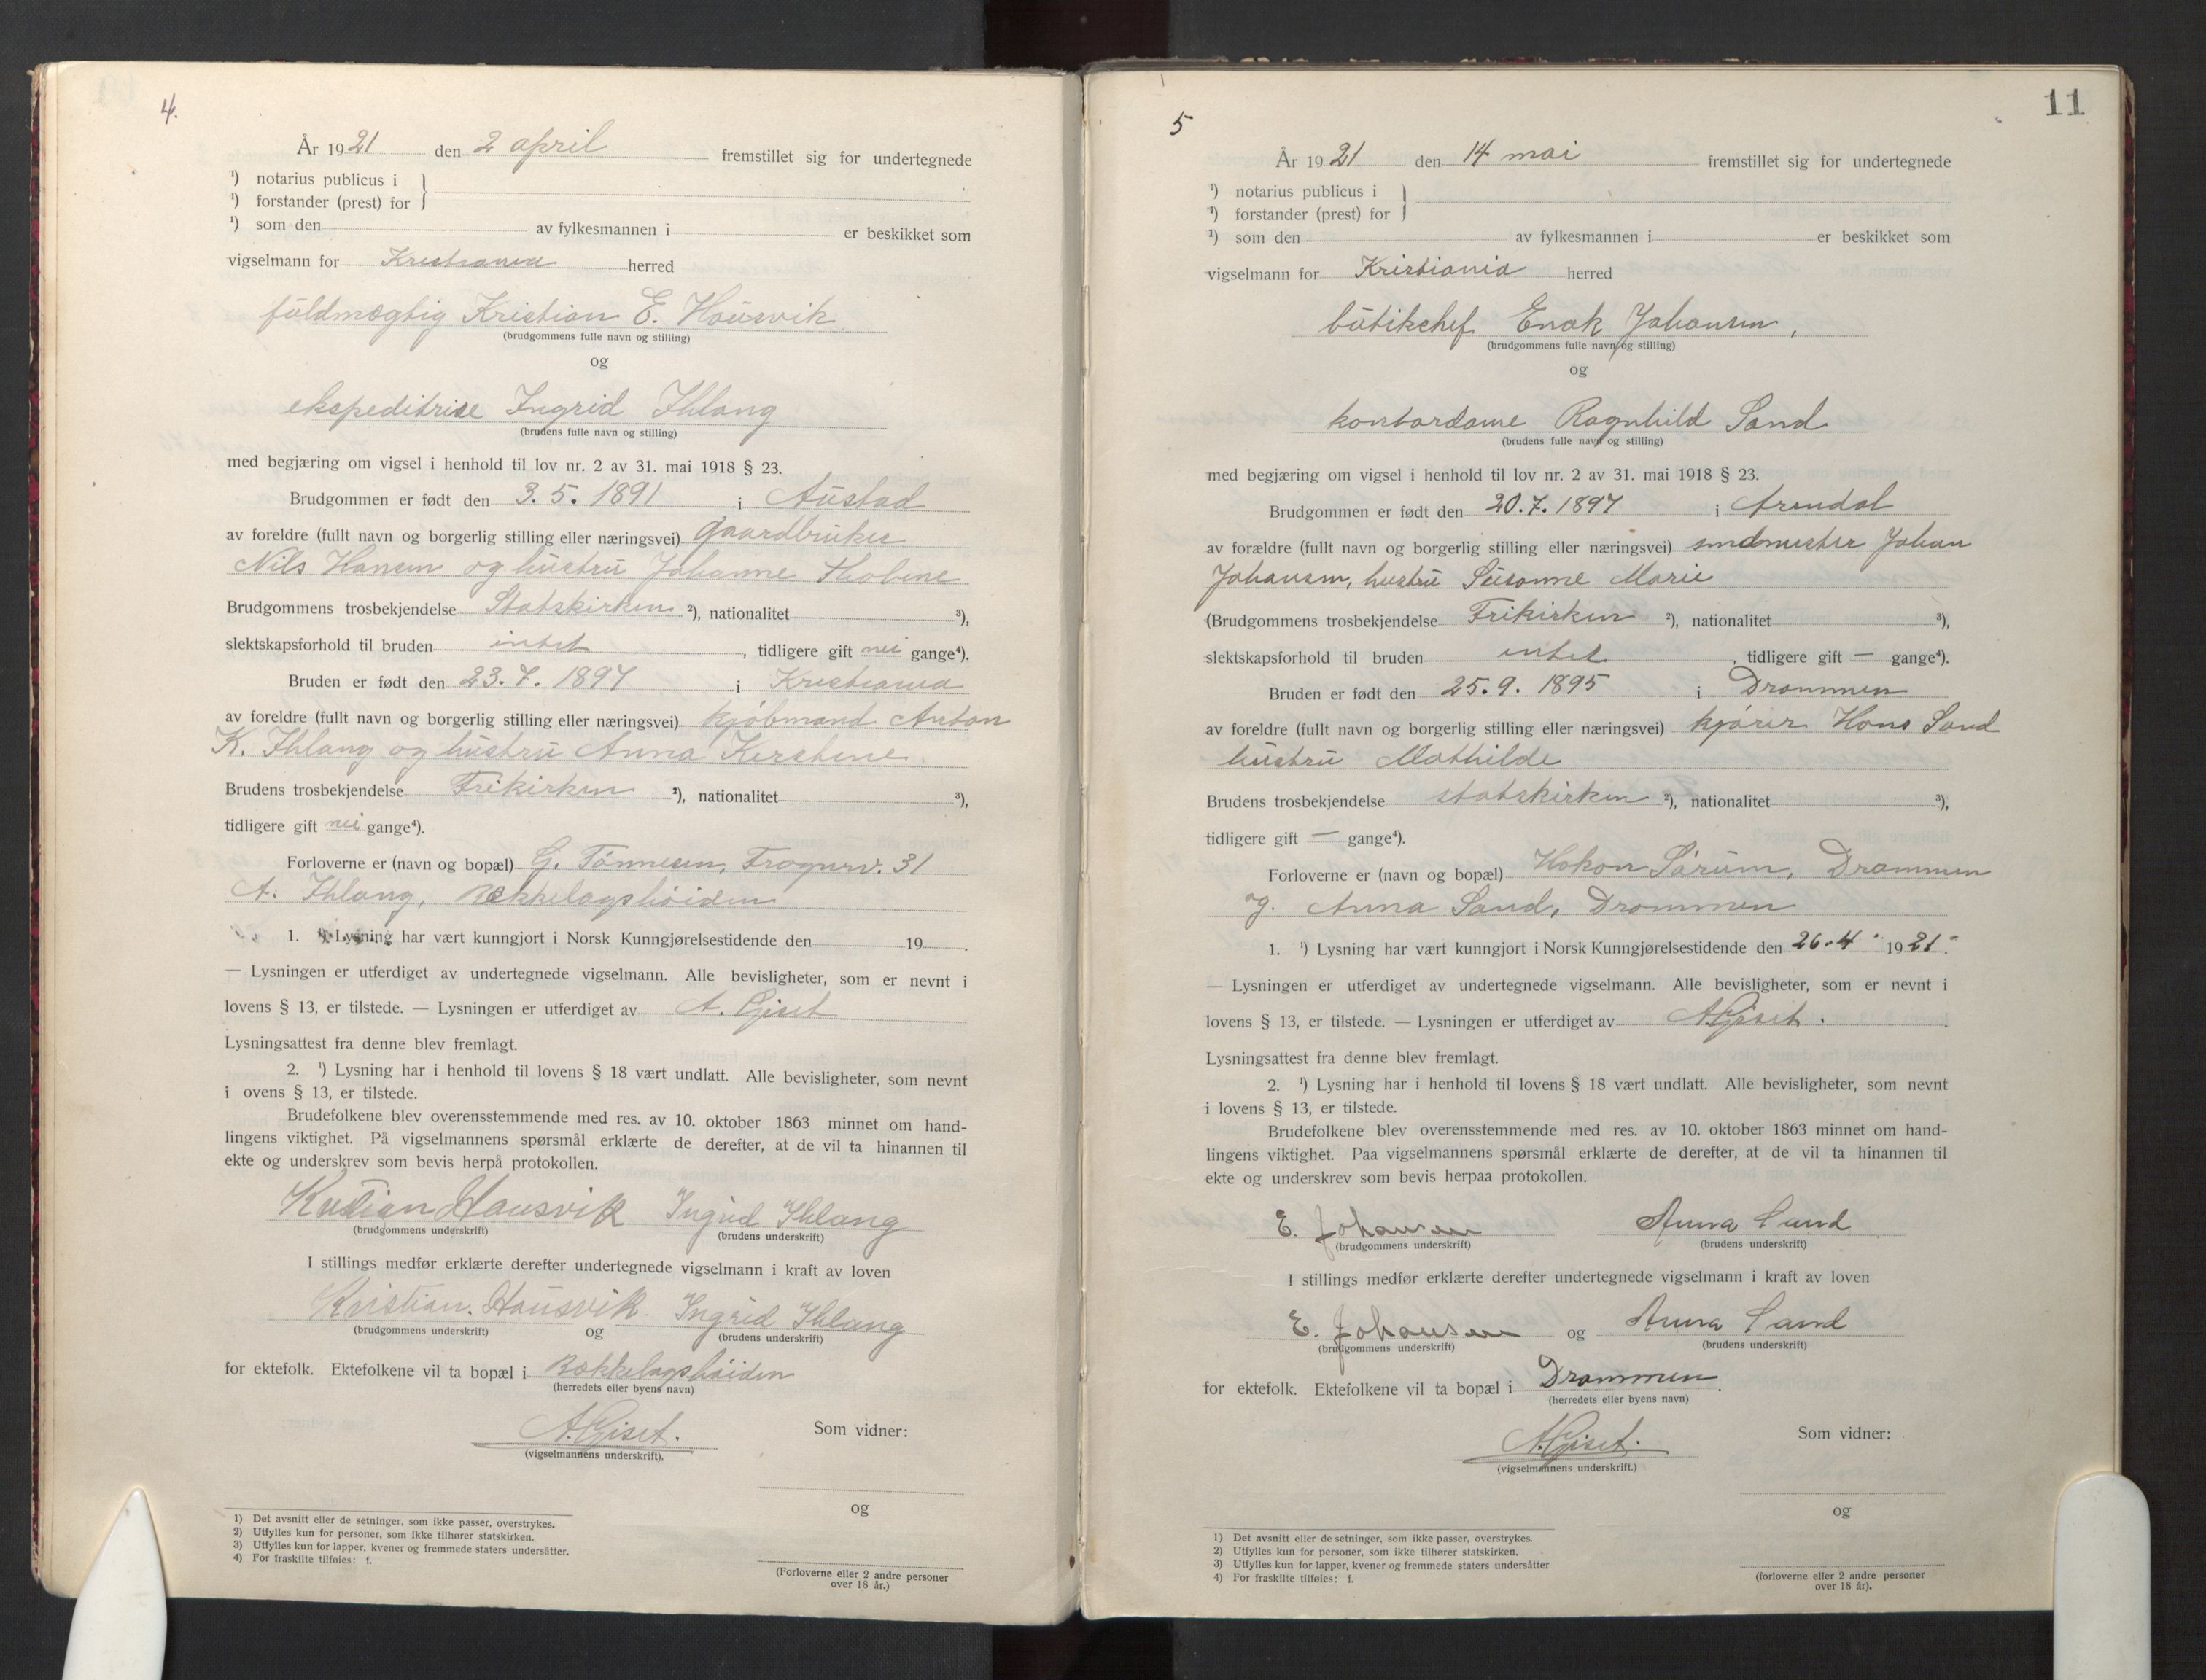 4.
År 1921 den 2 april fremstillet sig for undertegnede
¹) notarius publicus i }
¹) forstander (prest) for
¹) som den av fylkesmannen i er beskikket som
vigselmann for Kristiania herred
fuldmægtig Kristian E. Hausvik
(brudgommens fulle navn og stilling)
og
ekspeditrise Ingrid Ihlang
(brudens fulle navn og stilling)
med begjæring om vigsel i henhold til lov nr. 2 av 31. mai 1918 § 23.
Brudgommen er født den 3.5.1891 i Austad
av foreldre (fullt navn og borgerlig stilling eller næringsvei) gaardbruker
Nils Hansen og hustru Johanne Thobine
Brudgommens trosbekjendelse Statskirken ²), nationalitet ³),
slektskapsforhold til bruden intet, tidligere gift nei gange⁴).
Bruden er født den 23.7.1897 i Kristiania
av foreldre (fullt navn og borgerlig stilling eller næringsvei) kjøbmand Anton
K. Ihlang og hustru Anna Kerstine.
Brudens trosbekjendelse Frikirken ²), nationalitet ³),
tidligere gift nei gange⁴).
Forloverne er (navn og bopæl) G. Tønnesen, Frognerv. 31
A. Ihlang, Bækkelagshøiden
1. ¹) Lysning har vært kunngjort i Norsk Kunngjørelsestidende den 19 .
— Lysningen er utferdiget av undertegnede vigselmann. Alle bevisligheter, som er nevnt i
lovens § 13, er tilstede. — Lysningen er utferdiget av A. Giset
Lysningsattest fra denne blev fremlagt.
2. ¹) Lysning har i henhold til lovens § 18 vært undlatt. Alle bevisligheter, som nevnt
i ovens § 13, er tilstede.
Brudefolkene blev overensstemmende med res. av 10. oktober 1863 minnet om hand-
lingens viktighet. På vigselmannens spørsmål erklærte de derefter, at de vil ta hinannen til
ekte og underskrev som bevis herpå protokollen.
Kristian Hausvik Ingrid Ihlang
(brudgommens underskrift) (brudens underskrift)
I stillings medfør erklærte derefter undertegnede vigselmann i kraft av loven
Kristian. Hausvik. Ingrid Ihlang
(brudgommens underskrift) og (brudens underskrift)
for ektefolk. Ektefolkene vil ta bopæl i Bækkelagshøiden
(herredets eller byens navn)
A. Giset.
(vigselmannens underskrift).
Som vidner:
og
1) Det avsnitt eller de setninger, som ikke passer, overstrykes.
2) Utfylles kun for personer, som ikke tilhører statskirken.
3) Utfylles kun for lapper, kvener og fremmede staters undersåtter.
4) For fraskilte tilføies: f.
(Forloverne eller 2 andre personer
over 18 år.)
11
5
År 1921 den 14 mai fremstillet sig for undertegnede
¹) notarius publicus i }
¹) forstander (prest) for
¹) som den av fylkesmannen i er beskikket som
vigselmann for Kristiania herred
butikchef Enok Johansen,
(brudgommens fulle navn og stilling)
og
kontordame Ragnhild Sand
(brudens fulle navn og stilling)
med begjæring om vigsel i henhold til lov nr. 2 av 31. mai 1918 § 23.
Brudgommen er født den 20.7.1897 i Arendal
av forældre (fullt navn og borgerlig stilling eller næringsvei) smedmester Johan
Johansen, hustru Susanne Marie
(Brudgommens trosbekjendelse Frikirken ²), nationalitet ³),
slektskapsforhold til bruden intet, tidligere gift — gange⁴).
Bruden er født den 25.9.1895 i Drammen
av foreldre (fullt navn og borgerlig stilling eller næringsvei) kjører Hans Sand
hustru Mathilde
Brudens trosbekjendelse statskirken ²), nationalitet ³),
tidligere gift — gange⁴).
Forloverne er (navn og bopæl) Hakon Sørum, Drammen
og. Anna Sand, Drammen
1. ¹) Lysning har vært kunngjort i Norsk Kunngjørelsestidende den 26.-4. 1921.
— Lysningen er utferdiget av undertegnede vigselmann. Alle bevisligheter, som er nevnt i
lovens § 13, er tilstede. — Lysningen er utferdiget av A. Giset.
Lysningsattest fra denne blev fremlagt.
2. ¹) Lysning har i henhold til lovens § 18 vært undlatt. Alle bevisligheter, som nevnt
i lovens § 13, er tilstede.
Brudefolkene blev overensstemmende med res. av 10. oktober 1863 minnet om hand-
lingens viktighet. Paa vigselmannens spørsmål erklærte de derefter, at de vil ta hinannen til
ekte og underskrev som bevis herpaa protokollen.
E. Johansen Anna Sand
(brudgommens underskrift) (brudens underskrift)
I stillings medfør erklærte derefter undertegnede vigselmann i kraft av loven
E. Johansen og Anna Sand
(brudgommens underskrift) (brudens underskrift)
for ektefolk. Ektefolkene vil ta bopæl i Drammen.
(herredets eller byens navn)
A. Giset.
(vigselmannens underskrift.)
Som vidner:
og
1) Det avsnitt eller de setninger, som ikke passer, overstrykes.
2) Utfylles kun for personer, som ikke tilhører statskirken.
3) Utfylles kun for lapper, kvener og fremmede staters undersåtter
4) For fraskilte tilføies: f.
(forloverne eller 2 andre personer
over 18 år).